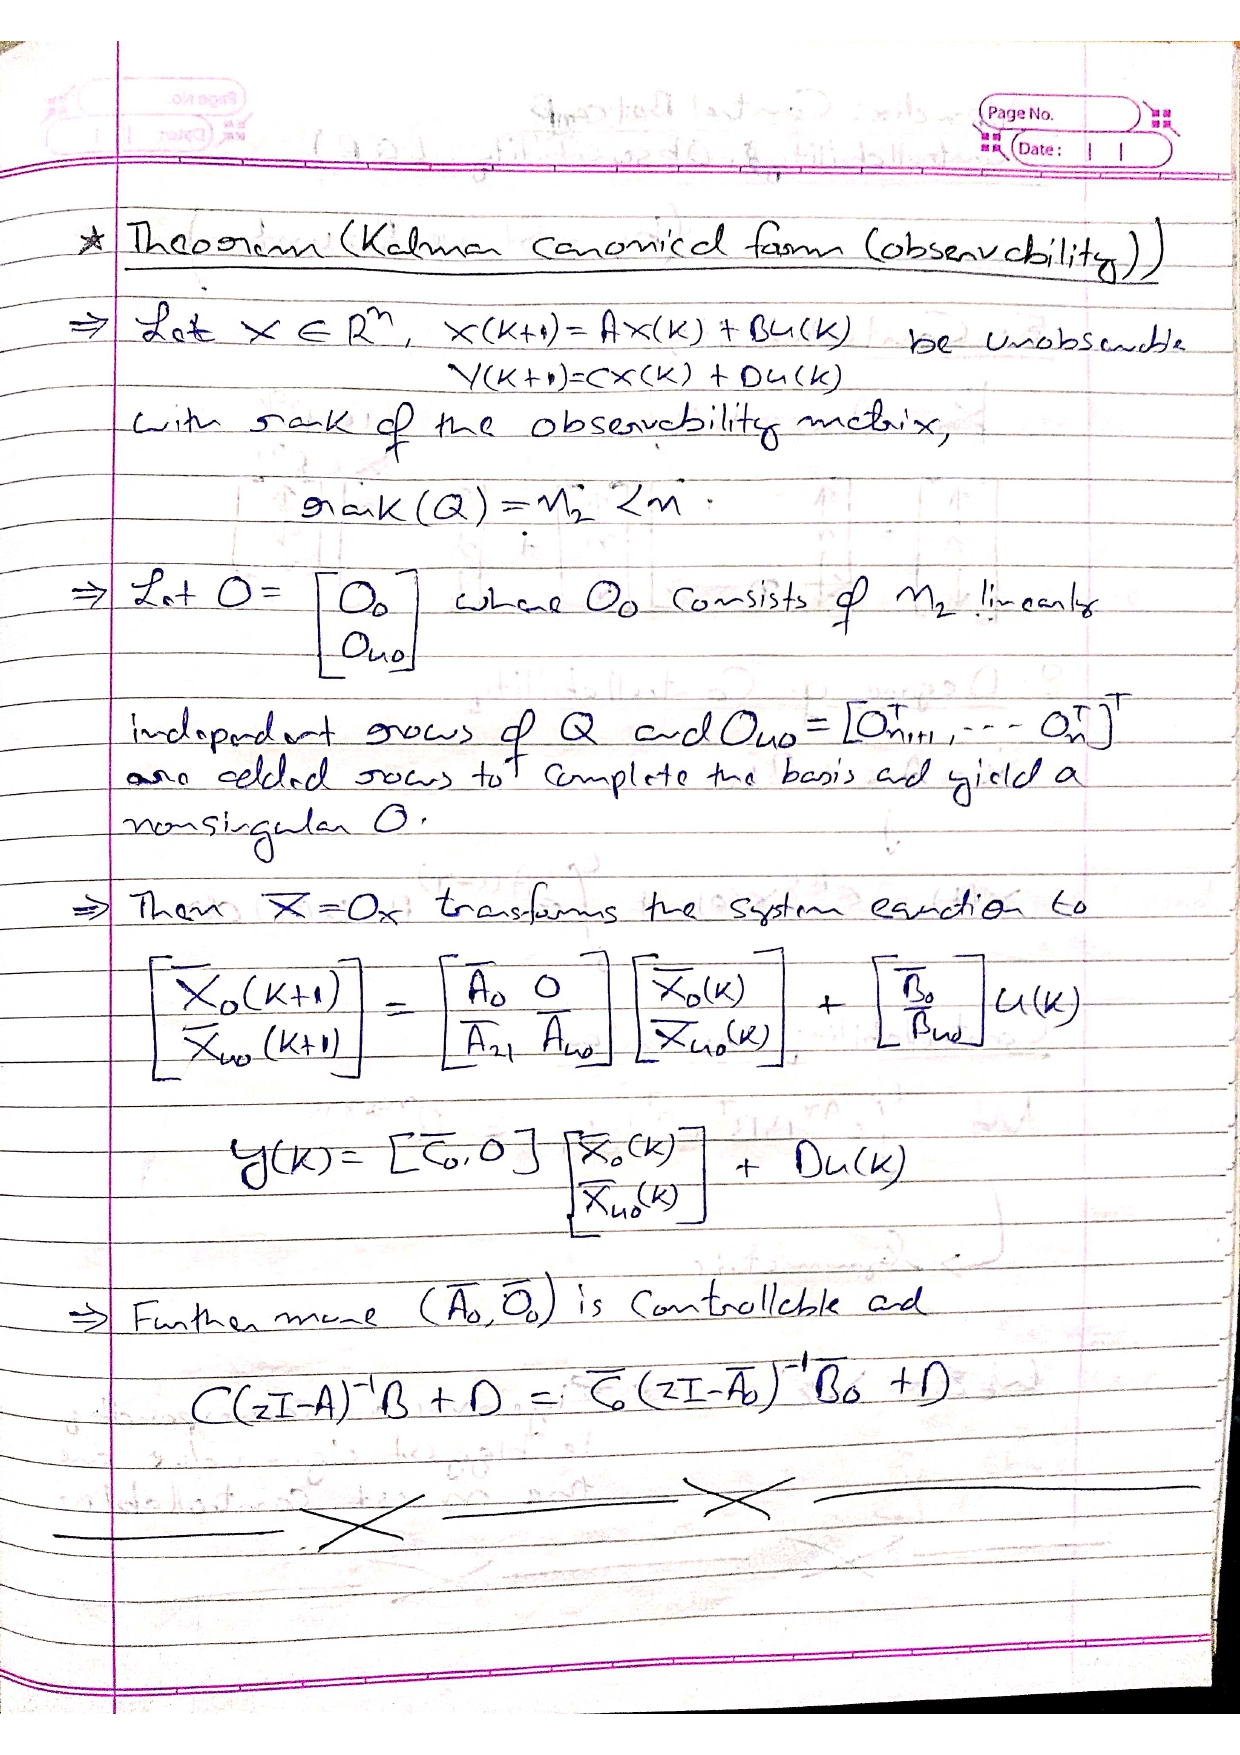 Page No.
Date :
★ Theorem (Kalman canonical form (observability))
⇒ Let x ∈ Rⁿ, x(k+1) = Ax(k) + Bu(k) be unobservable
y(k+1) = Cx(k) + Du(k)
with rank of the observability matrix,
rank(Q) = n₂ < n.
⇒ Let O = [O₀ ; O_uo] where O₀ consists of n₂ linearly
independent rows of Q and O_uo = [Oᵀ_{n₁+1}, --- Oᵀ_n]ᵀ
are added rows to complete the basis and yield a
nonsingular O.
⇒ Then x̄ = Ox transforms the system equation to
[x̄₀(k+1) ; x̄_uo(k+1)] = [Ā₀ 0 ; Ā₂₁ Ā_uo] [x̄₀(k) ; x̄_uo(k)] + [B̄₀ ; B̄_uo] u(k)
y(k) = [C̄₀, 0] [x̄₀(k) ; x̄_uo(k)] + Du(k)
⇒ Further more (Ā₀, Ō₀) is controllable and
C(zI-A)⁻¹B + D = C̄₀(zI-Ā₀)⁻¹B̄₀ + D